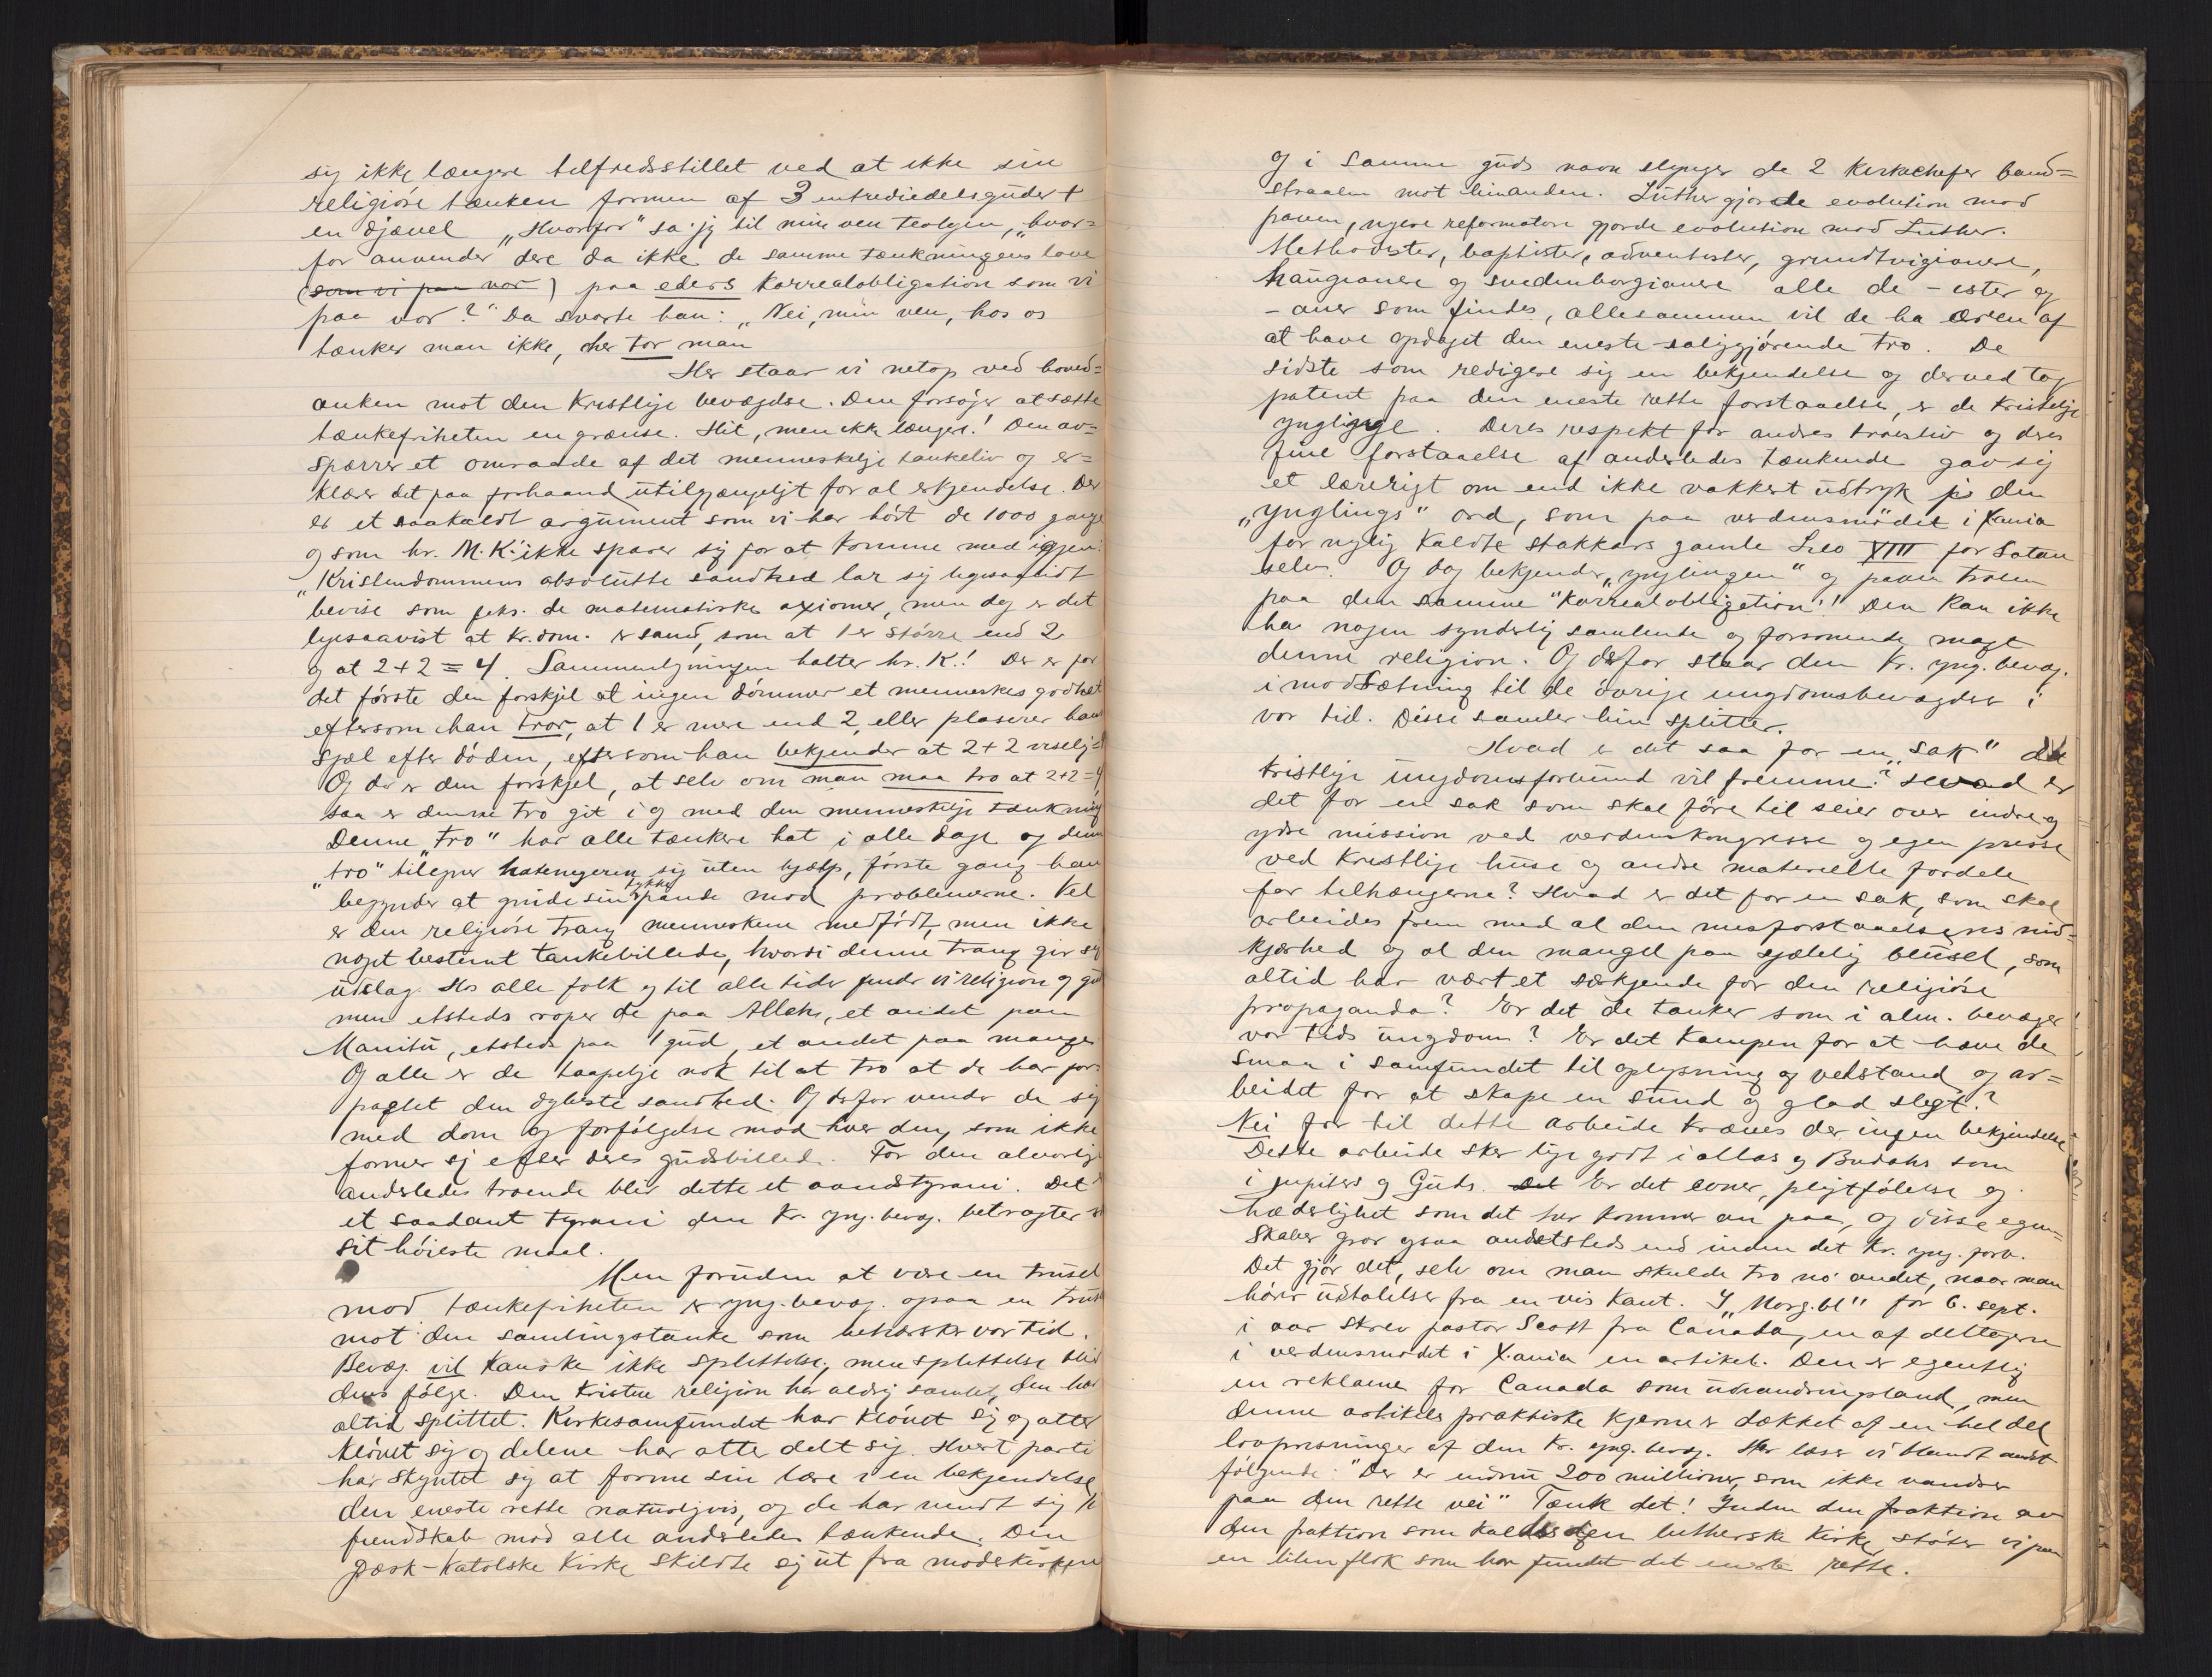 sig ikke længere tilfredsstillet ved at ikke sin
religiøse tanken formen af 3 entrediedelsguder +
en djævel „Hvorfor" sa jg til min ven teologen, „hvor=
for anvender dere da ikke de samme tænkningens love
(som vi paa vor) paa eders Korrealobligation som vi
paa vor?" Da svarte han: „Nei, min ven, hos os
tænker man ikke, der tror man
Her staar vi netop ved hoved=
anken mot den Kristlige bevægelse. Den forsøger at sætte
tænkefriheten en grænse. Hit, men ikke længer! Den av=
spærrer et omraade af det menneskelige tankeliv og er=
klærer det paa forhaand utilgjængeligt for al erkjendelse. Der
er et saakaldt argument som vi har hørt de 1000 gange
og som hr. M.K. ikke sparer sig for at komme med igjen:
„Kristendommens absolutte sandhed lar sig ligesaalidt
bevise som f.eks. de matematiske axiomer, men dog er det
ligesaavist at Kr.dom. er sand, som at 1 er større end 2
og at 2+2=4. Sammenligningen halter hr. K.! Der er for
det første den forskjel at ingen dømmer et menneskes godhet
eftersom han tror, at 1 er mere end 2, eller plaserer hans
sjæl efter døden, eftersom han bekjender at 2+2 virkelig=4
Og der er den forskjel, at selv om man maa tro at 2+2=4,
saa er denne tro git i og med den menneskelige tænkning
Denne „tro" har alle tænkere hat i alle dage og denne
„tro" tilegner hottentotten sig uten hjælp, første gang han
begynder at gnide sin tykke pande mod problemerne. Vel
er den religiøse trang menneskene medfødt, men ikke
noget bestemt tankebillede, hvori denne trang gir sig
udslag. Hos alle folk og til alle tider finder vi religion og gud
men etsteds roper de paa Allah, et andet paa
Manitu, etsteds paa 1 gud, et andet paa mange
Og alle er de taapelige nok til at tro at de har for=
pagtet den dybeste sandhed. Og derfor vender de sig
med dom og forfølgelse mod hver den, som ikke
former sig efter deres gudsbillede. For den alvorlige
anderledes troende blir dette et aandstyrani. Det
et saadant tyrani den Kr. yng. bevæg. betragter som
sit høieste maal.
Men foruden at være en trusel
mod tænkefriheten er yng. bevæg. ogsaa en trusel
mot den samlingstanke som behersker vor tid.
Bevæg. vil kanske ikke splittelse, men splittelse blir
dens følge. Den Kristne religion har aldrig samlet, den har
altid splittet. Kirkesamfundet har kløvet sig og atter
kløvet sig og delene har atter delt sig. Hvert parti
har skyntet sig at forme sin lære i en bekjendelse,
den eneste rette naturligvis, og de har vendt sig i
fiendskab mod alle anderledes tænkende. Den
græsk-katolske Kirke skildte sig ut fra moderkirken
og i samme guds navn slynger de 2 Kirkechefer band=
straalen mot hinanden. Luther gjorde evolution mod
paven, nyere reformatorer gjorde evolution mod Luther.
Methodister, baptister, adventister, grundtvigianere,
haugianere og svedenborgianere alle de -ister og
-aner som findes, allesammen vil de ha æren af
at have opdaget den eneste saliggjørende tro. De
sidste som redigere sig en bekjendelse og derved tog
patent paa den eneste rette forstaaelse, er de Kristelige
ynglinge. Deres respekt for andres troesliv og deres
fine forstaaelse af anderledes tænkende gav sig
et lærerigt om end ikke vakkert udtryk i den
„ynglings" ord, som paa verdensmødet i Xania
for nylig kaldte stakkars gamle Leo XIII for Satan
selv. Og dog bekjender „ynglingen" og paven troen
paa den samme "Korrealobligation"! Den kan ikke
ha nogen synderlig samlende og forsonende magt
denne religion. Og derfor staar den Kr. yng. bevæg.
i modsætning til de øvrige ungdomsbevægelser i
vor tid. Disse samler hin splitter.
Hvad er det saa for en „sak" det
kristlige ungdomsforbund vil fremme? Hvad er
det for en sak som skal føre til seier over indre og
ydre mission ved verdenskongresse og egen presse
ved Kristlige huse og andre materielle fordele
for tilhængerne? Hvad er det for en sak, som skal
arbeides frem med al den misforstaaelsens nid=
kjærhed og al den mangel paa sjælelig blusel, som
altid har vært et særkjende for den religiøse
propaganda? Er det de tanker som i alm. bevæger
vor tids ungdom? Er det Kampen for at hæve de
smaa i samfundet til oplysning og velstand og ar=
beidet for at skape en sund og glad slegt?
Nei for til dette arbeide kræves der ingen bekjendelse
Dette arbeide sker lige godt i allas og Budahs som
i jupiters og Guds. Er det evner, pligtfølelse og
hæderlighet som det her kommer an paa, og disse egen=
skaber gror ogsaa andetsteds end inden det Kr. yng. forb.
Det gjør det, selv om man skulde tro no' andet, naar man
hører udtalelser fra en vis kant. I „Morg.bl" for 6. sept.
i aar skrev pastor Scott fra Canada, en af deltagerne
i verdensmødet i X.ania en artikel. Den er egentlig
en reklame for Canada som udvandringsland, men
denne artikels praktiske kjerne er dækket af en hel del
lovprisninger af den Kr. yng. bevæg. Her læser vi blandt andet
følgende: "Der er endnu 200 millioner, som ikke vandrer
paa den rette vei" Tænk det! Inden den fraktion av
den fraktion som kaldes den lutherske Kirke, støter vi paa
en liten flok som har fundet det eneste rette.